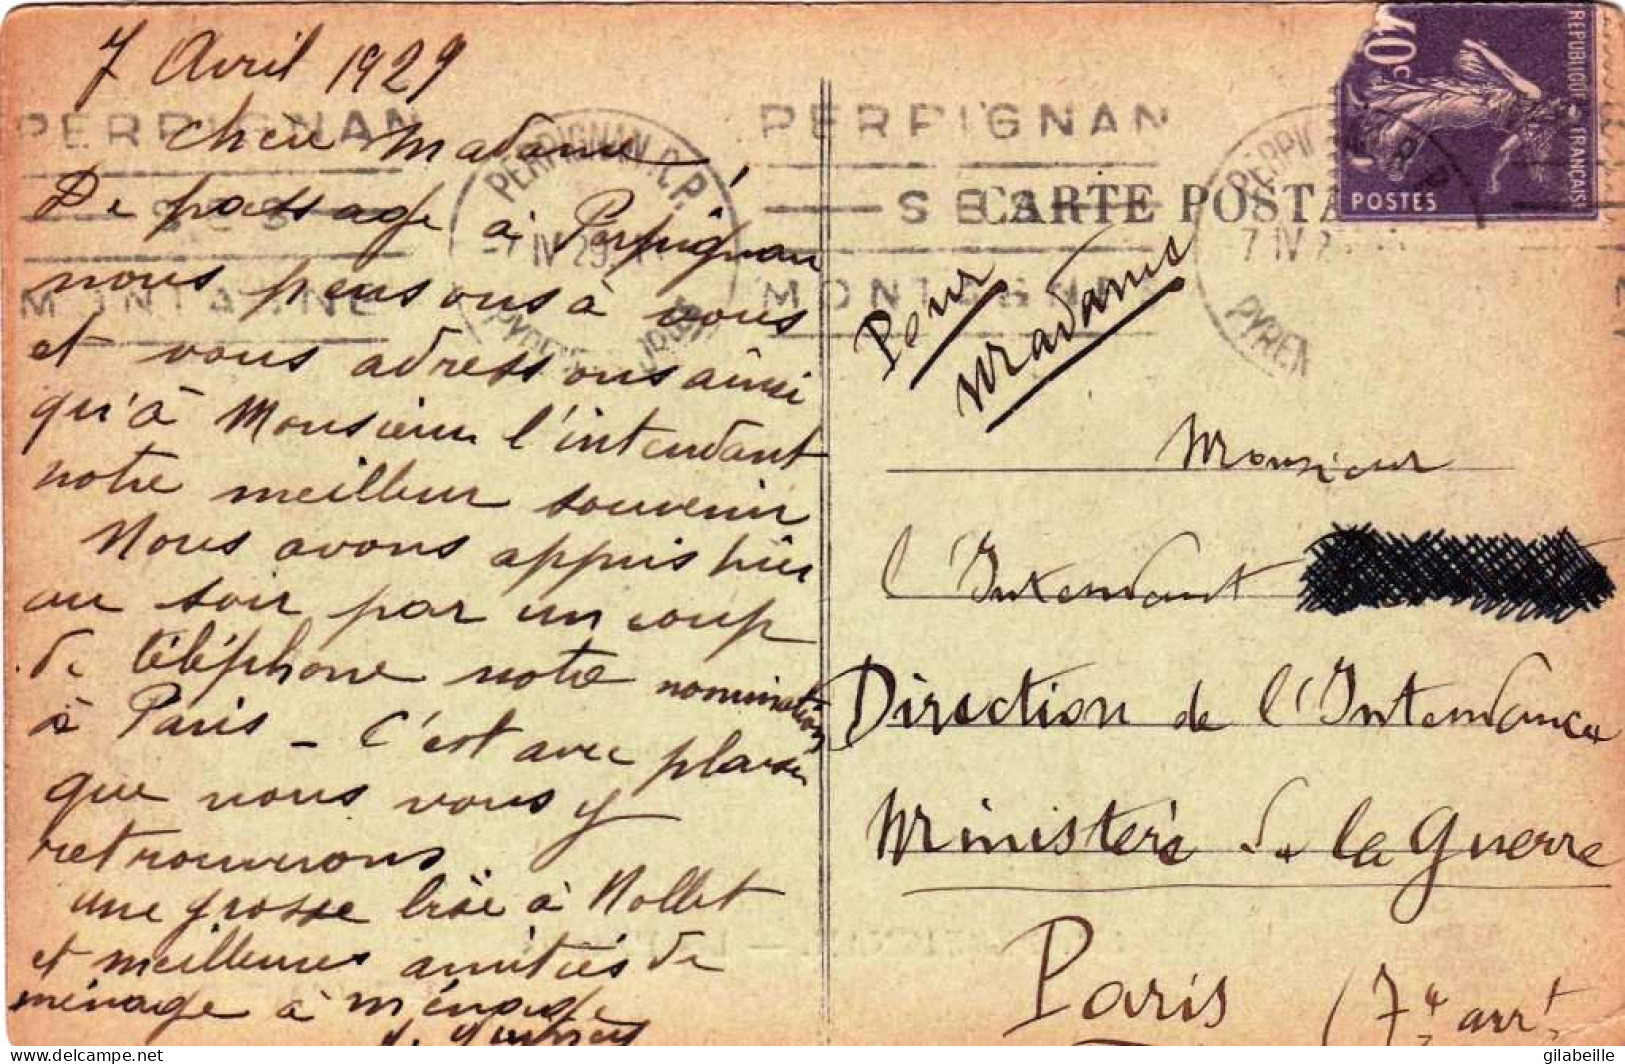 7 Avril 1929
Chère Madame,
De passage à Perpignan
nous pensons à vous
et vous adressons ainsi
qu'à Monsieur l'intendant
notre meilleur souvenir
Nous avons appris hier
au soir par un coup
de téléphone notre nomination
à Paris - C'est avec plaisir
que nous vous y
retrouverons.
une grosse bise à Nollet
et meilleures amitiés de
ménage à ménage
PERPIGNAN
MONTAGNE
PERPIGNAN R.P.
7 IV 29
PERPIGNAN
SES
MONTAGNE
CARTE POSTA
40c
REPUBLIQUE FRANCAISE
POSTES
7 IV 2
PYREN
Pour
Madame
Monsieur
l'Intendant
Direction de l'Intendance
Ministère de la Guerre
Paris (7e arrt
gilabeille